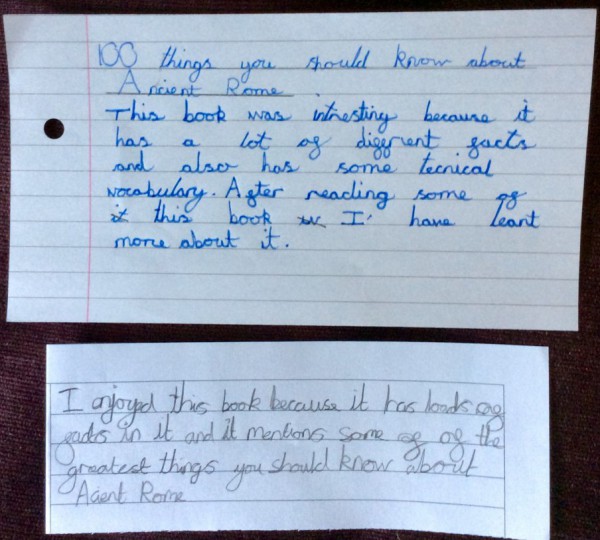 100 things you should know about
Ancient Rome
This book was intresting because it
has a lot of different facts
and also has some tecnical
vocabulary. After reading some of
it this book I have leant
more about it.
I enjoyed this book because it has loads of
facts in it and it mentions some of of the
greatest things you should know about
Acient Rome